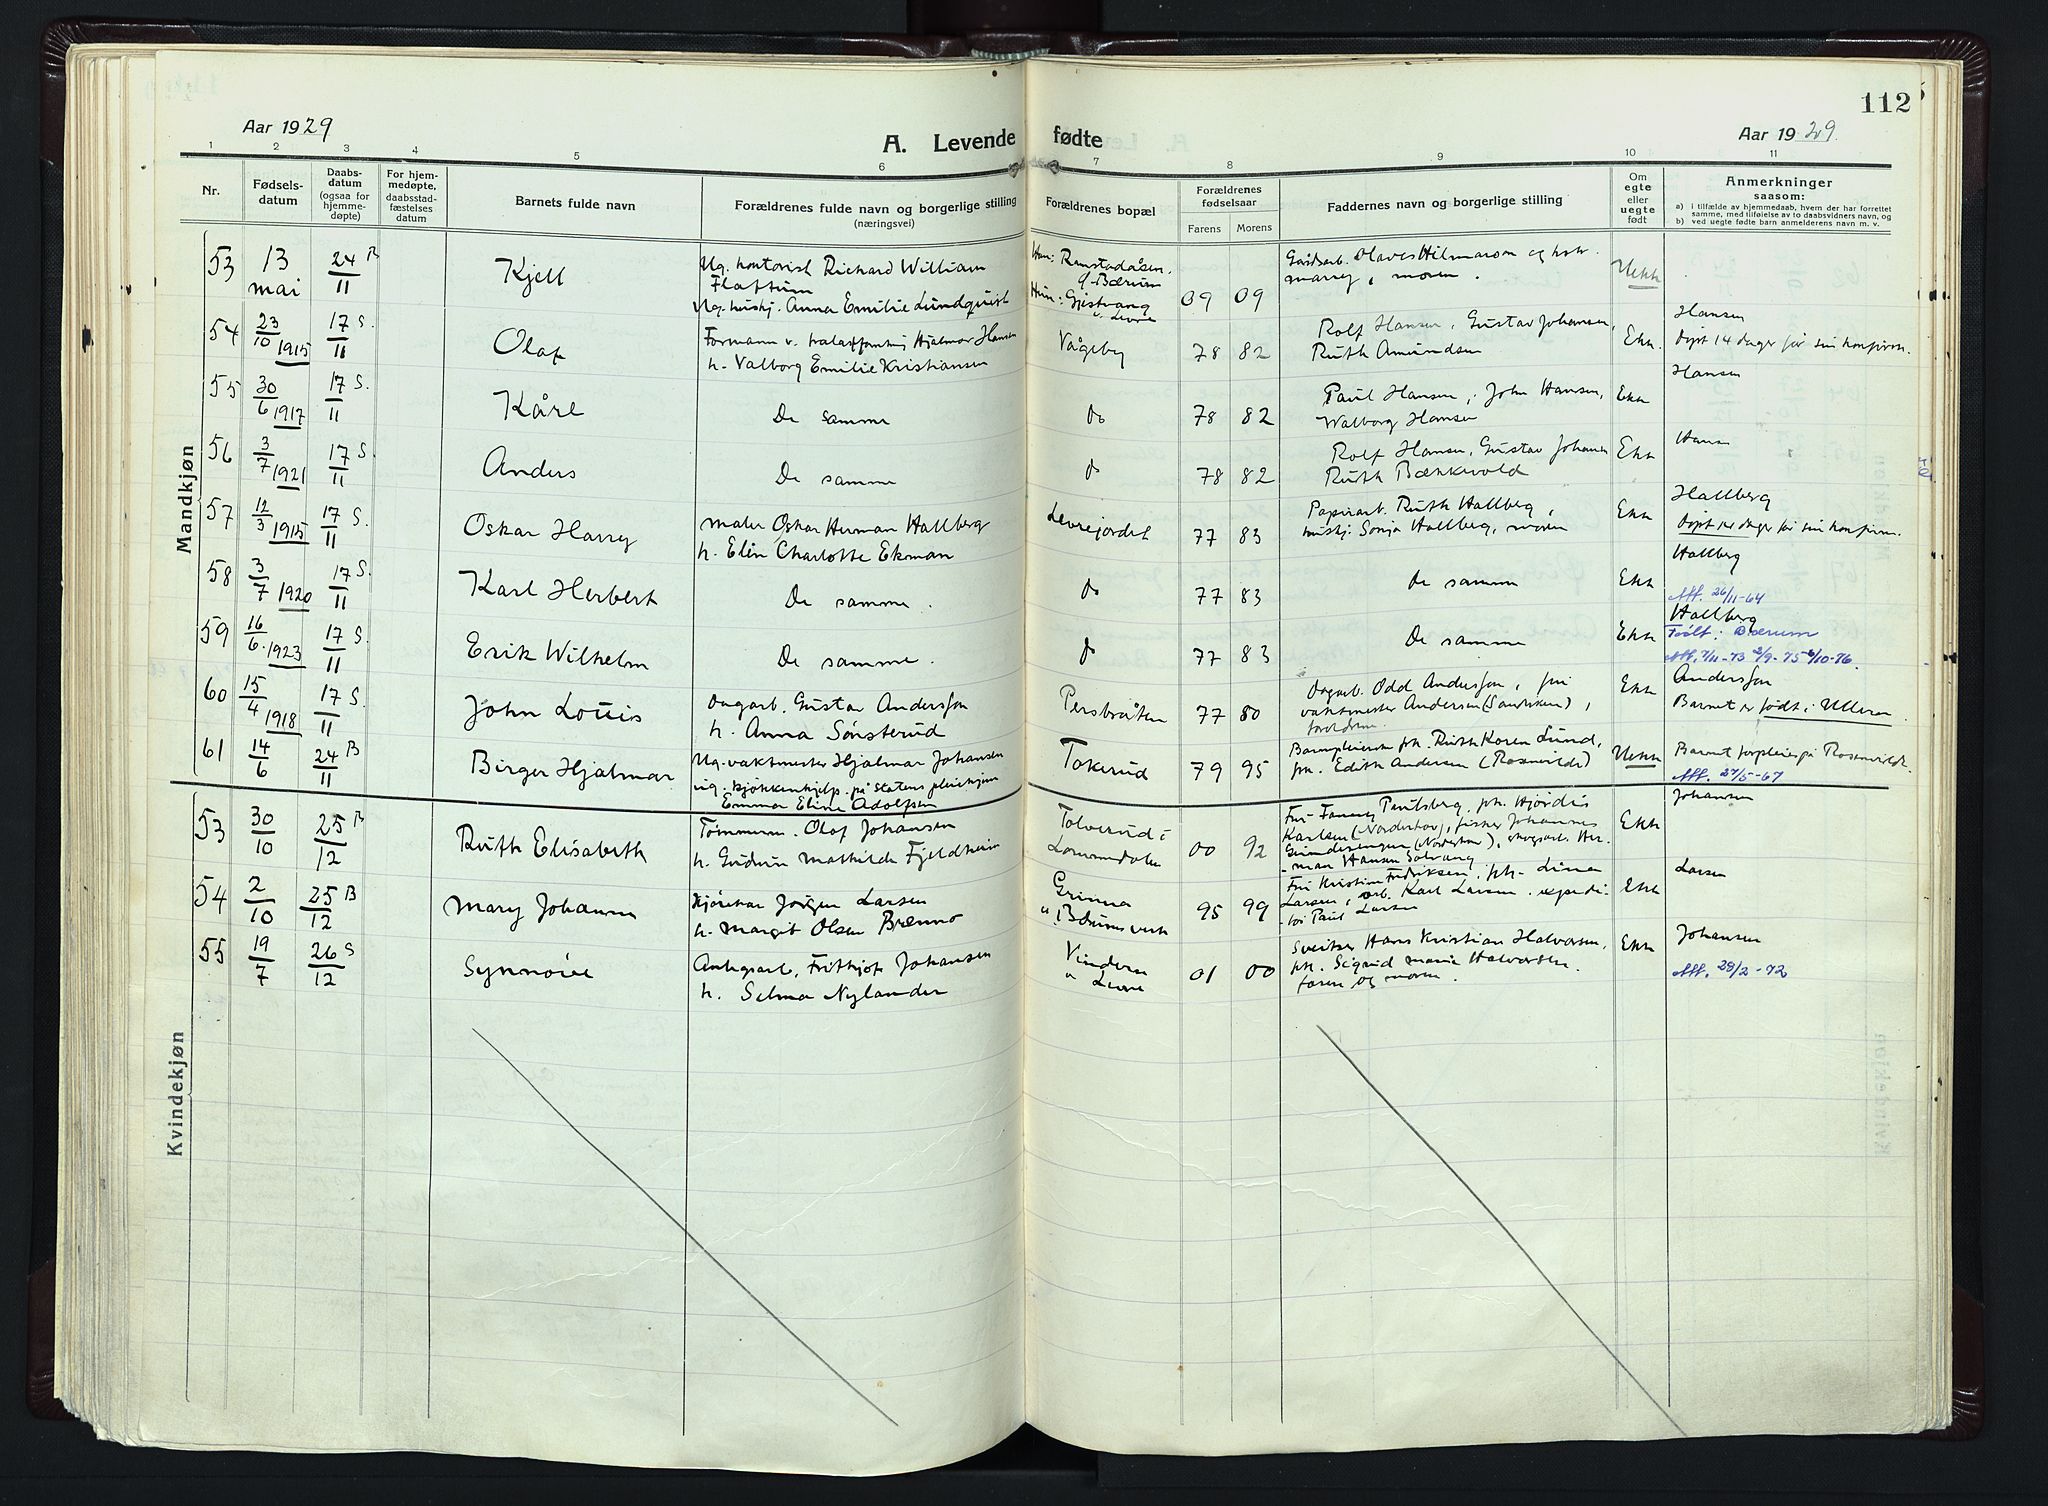 112
Aar 1929
A. Levende fødte
Aar 1929.
1 2 3 4 5 6 7 8 9 10 11
Nr.
Fødsels-
datum
Daabs-
datum
(ogsaa for
hjemme-
døpte)
For hjem-
medøpte,
daabsstad-
fæstelses
datum
Barnets fulde navn
Forældrenes fulde navn og borgerlige stilling
(næringsvei)
Forældrenes bopæl
Forældrenes
fødselsaar
Farens Morens
Faddernes navn og borgerlige stilling
Om
egte
eller
uegte
født
Anmerkninger
saasom:
a) i tilfælde av hjemmedaab, hvem der har forrettet
samme, med tilføielse av to daabsvidners navn, og
b) ved uegte fødte barn anmelderens navn m. v.
Mandkjøn
53 13 mai 24/11 B Kjell
Ug. kontorist Richard William
Flattum
Ug. hushj. Anna Emilie Lundquist
Han: Ramstadåsen.
Bærum
Hun: Gjistvang
09 09
og
moren.
Uekte
54 23/10 1915 17/11 S. Olaf
Formann v. Hjalmar Hansen
h. Valborg Emilie Kristiansen
Vågeby 78 82
Rolf Hansen, Gustav Johansen,
Ruth Amundsen
Ekte.
Hansen
Døpt 14 dager før sin konfirm.
55 30/6 1917 17/11 S. Kåre
De samme
do 78 82
Paul Hansen, John Hansen,
Walborg Hansen
Ekte
Hansen
56 3/7 1921 17/11 S. Anders
De samme
do 78 82
Rolf Hansen, Gustav Johansen
Ruth
Ekte
Hansen
57 12/3 1915 17/11 S. Oskar Harry
Maler Oskar Herman Hallberg
h. Elin Charlotte Ekman
Levrejordet 77 83
Papirarb. Ruth Hallberg,
hushj. Sonja Hallberg, moren
Ekte
Hallberg
Døpt 14 dager før sin konfirm.
58 3/7 1920 17/11 S. Karl Herbert
De samme.
do 77 83
De samme
Ekte
Hallberg
Att. 26/11-64
59 16/6. 1923 17/11 S. Erik Wilhelm
De samme.
do 77 83
De samme
Ekte
Hallberg
Født: Bærum
Att. 7/11-73 2/9-75 6/10-76.
60 15/4 1918 17/11 S. John Louis
Dagarb. Gustav Andersson
h. Anna Sønsterud
Persbråten 77 80
Dagarb. Odd Andersson, fru
vaktmester Andersen (Sandviken),
foreldrene.
Ekte
Andersson
Barnet er født i Ullern.
61 14/6 24/11 B Birger Hjalmar
Ug. vaktmester Hjalmar Johansen
ug. kjøkkenhjelp. på Statens pleiehjem
Emma Eline Adolfsen
Tokerud 79 95
Barnepleierske frk. Ruth Koren Lund,
frk. Edith Andersen (Rosenvilde)
Uekte
Barnet forpleies på Rosenvilde.
Att. 27/5-67
Kvindekjøn
53 30/10 25/12 B Ruth Elisabeth
Tømmerm. Olaf Johansen
h. Gudrun Mathilde Fjeldheim
Tolverud i
Lommedalen
00 92
Fru Fanny frk. Hjørdis
Karlsen (Norderhov), fisker Johannes
(Norderhov), skogsarb. Her-
man Hansen Solvang
Ekte
Johansen
54 2/10 25/12 B Mary Johanne
Kjørekar Jørgen Larsen
h. Margit Olsen Brenno
Grinna
v. Bærums verk
95 99
Fru Kristine Fredriksen, frk. Lina
Larsen, arb. Karl Larsen, expedi-
tør Paul Larsen
Ekte
Larsen
55 19/7 26/12 S Synnøve
Anlegsarb. Frithjof Johansen
h. Selma Nylander
Vindern
v. Levre
01 00
Sveitser Hans Kristian Halvorsen,
frk. Sigrid Marie Halvorsen.
faren og moren.
Ekte
Johansen
Att. 28/2-72